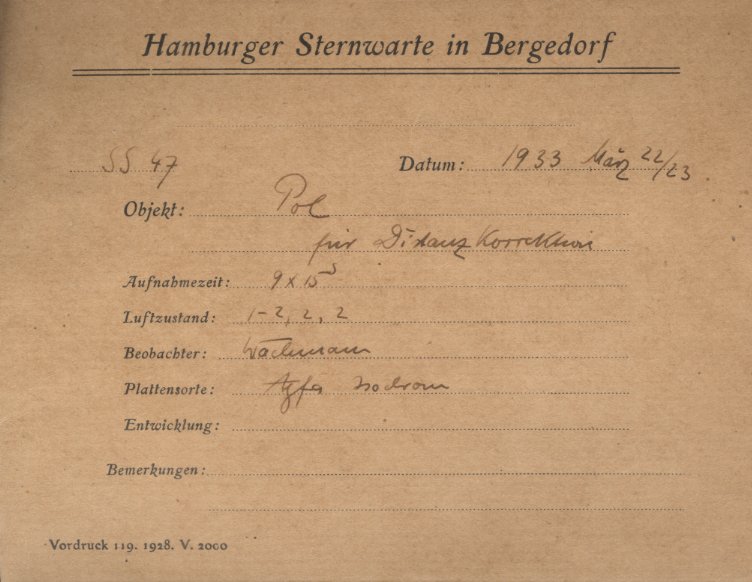 Hamburger Sternwarte in Bergedorf
SS 47 Datum: 1933 März 22/23.
Objekt: Pol
für Distanz Korrektion
Aufnahmezeit: 9 x 15 s
Luftzustand: 1-2, 2, 2
Beobachter: Wachmann
Plattensorte: Agfa Isochrom
Entwicklung:
Bemerkungen:
Vordruck 119. 1928. V. 2000